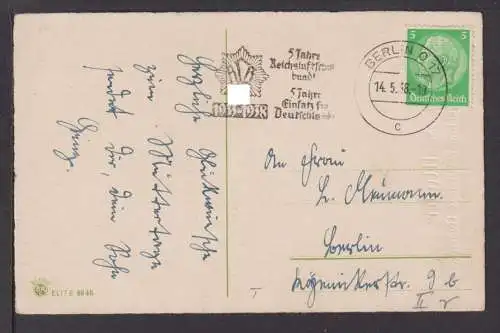 5 Jahre
Reichsluftschutz
bund
5 Jahre
Einsatz für
Deutschland
RLB
1933-1938
BERLIN O 17
14.5.38
c
5
5
Deutsches Reich
Herzliche Glückwünsche
zum Muttertage
sendet Dir, dein Sohn
Heinz.
An Frau
L. Neumann.
Berlin
Köpenickerstr. 9b
II r
ELITE